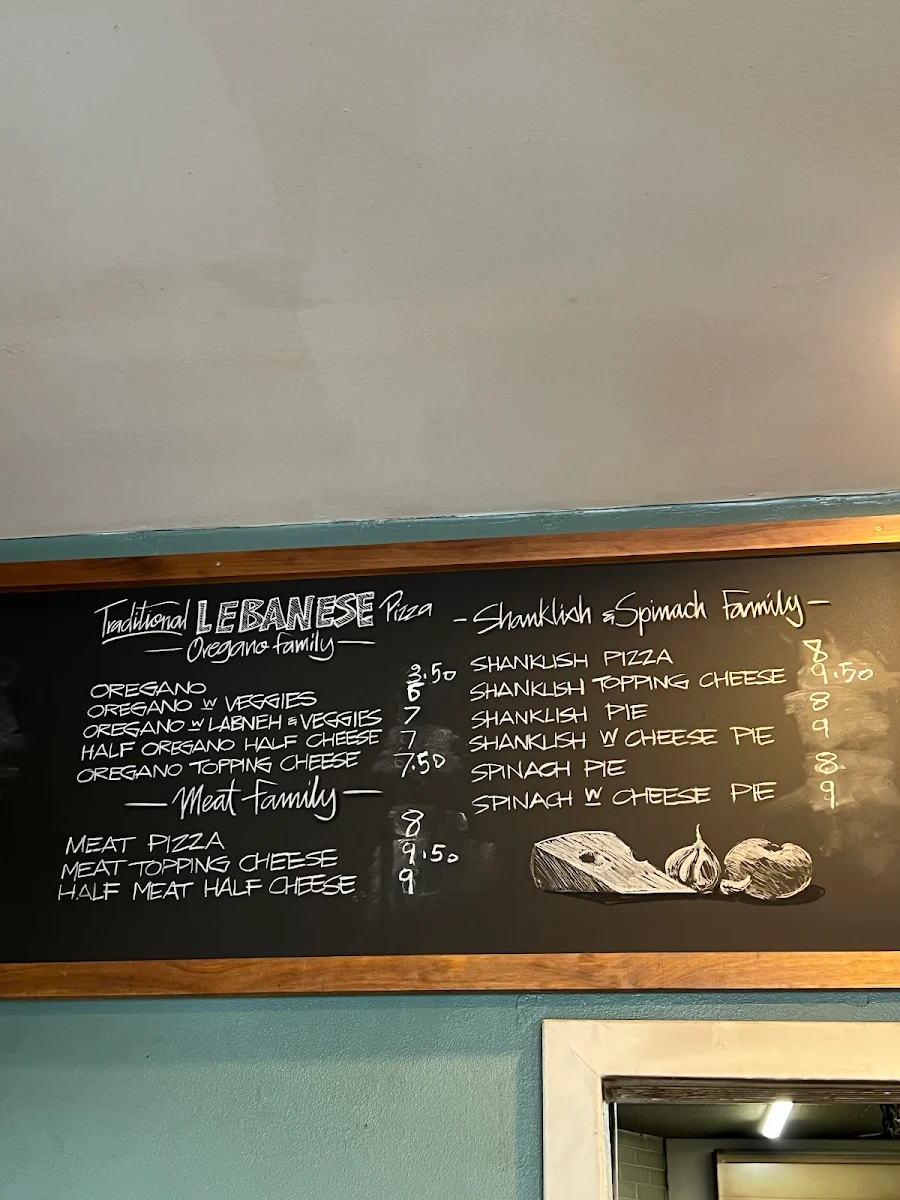 Traditional LEBANESE Pizza
— Oregano family —
OREGANO 3.50
OREGANO W VEGGIES 6
OREGANO W LABNEH & VEGGIES 7
HALF OREGANO HALF CHEESE 7
OREGANO TOPPING CHEESE 7.50
— Meat Family —
MEAT PIZZA 8
MEAT TOPPING CHEESE 9.50
HALF MEAT HALF CHEESE 9
- Shanklish & Spinach Family -
SHANKLISH PIZZA 8
SHANKLISH TOPPING CHEESE 9.50
SHANKLISH PIE 8
SHANKLISH W CHEESE PIE 9
SPINACH PIE 8
SPINACH W CHEESE PIE 9